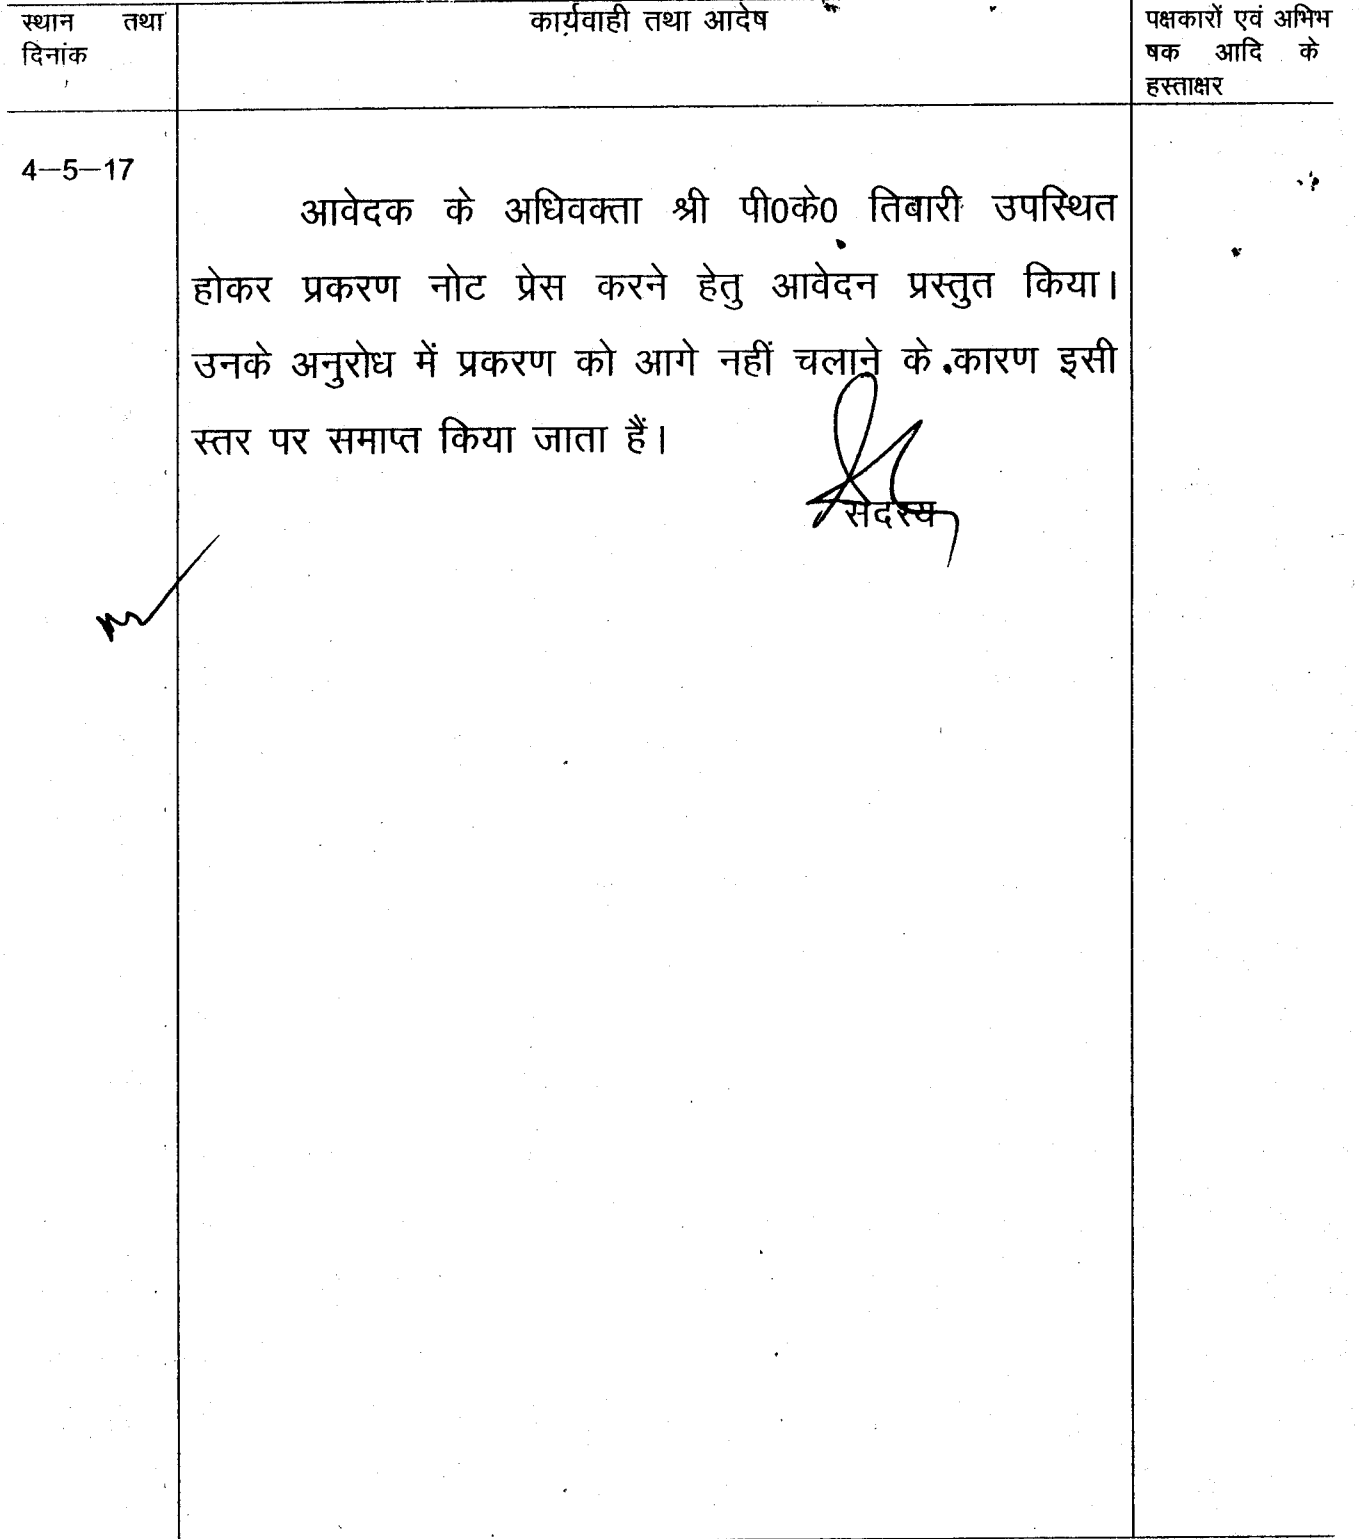 स्थान तथा
दिनांक
कार्यवाही तथा आदेष
पक्षकारों एवं अभिभ
षक आदि के
हस्ताक्षर
4–5–17
आवेदक के अधिवक्ता श्री पी0के0 तिबारी उपस्थित
होकर प्रकरण नोट प्रेस करने हेतु आवेदन प्रस्तुत किया।
उनके अनुरोध में प्रकरण को आगे नहीं चलाने के कारण इसी
स्तर पर समाप्त किया जाता हैं।
सदस्य